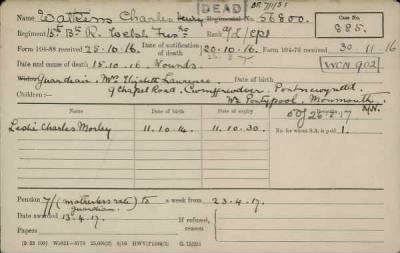 DEAD
Name Watkins Charles Henry Regimental No. 56800.
Case No. 885.
Regiment 15th Bn R. Welsh Fus. Rank A/L/Cpl
Form 104-88 received 25.10.16. Date of notification of death 20.10.16. Form 104-76 received 30 11-16
Date and cause of death 15.10.16. Wounds.
WCN 902
Widow: Guardian. Mrs Elizabeth Lawrence
9 Chapel Road,
Children:—
Nr Pontypool, Monmouth.
Name. Date of Birth. Date of Expiry.
No. for whom S.A. is paid 1.
Leslie Charles Morley 11.10.14. 11.10.30.
Pension 7/- (motherless rate) to guardian. a week from 23.4.17.
Date awarded 13.4.17. If refused, reason
Papers: